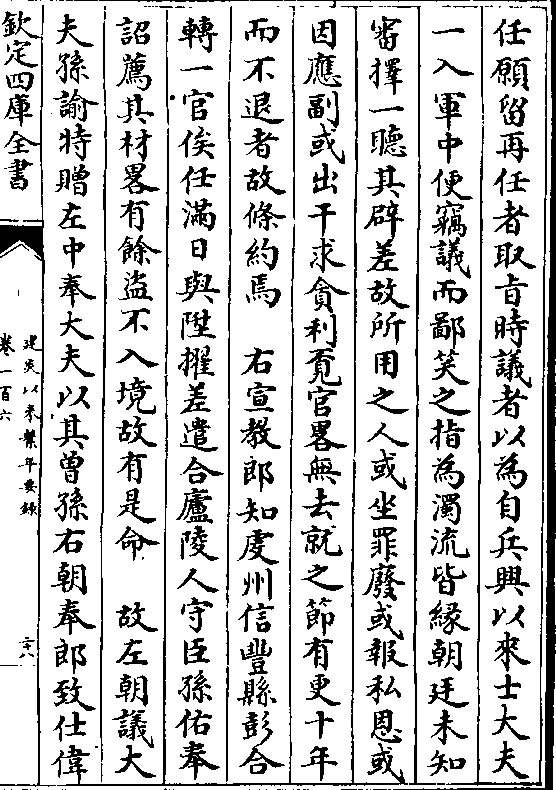 任願留再任者取旨時議者以為自兵興以來士大夫
一入軍中便竊議而鄙笑之指為濁流皆緣朝廷未知
審擇一聽其辟差故所用之人或坐罪廢或報私恩或
因應副或出干求貪利覔官畧無去就之節有更十年
而不退者故條約焉　右宣教郎知虔州信豐縣彭合
轉一官俟任滿日與陞擢差遣合廬陵人守臣孫佑奉
詔薦其材畧有餘盜不入境故有是命　故左朝議大
夫孫諭特贈左中奉大夫以其曾孫右朝奉郎致仕偉
欽定四庫全書
建炎以來繫年要錄
卷一百六
二十八